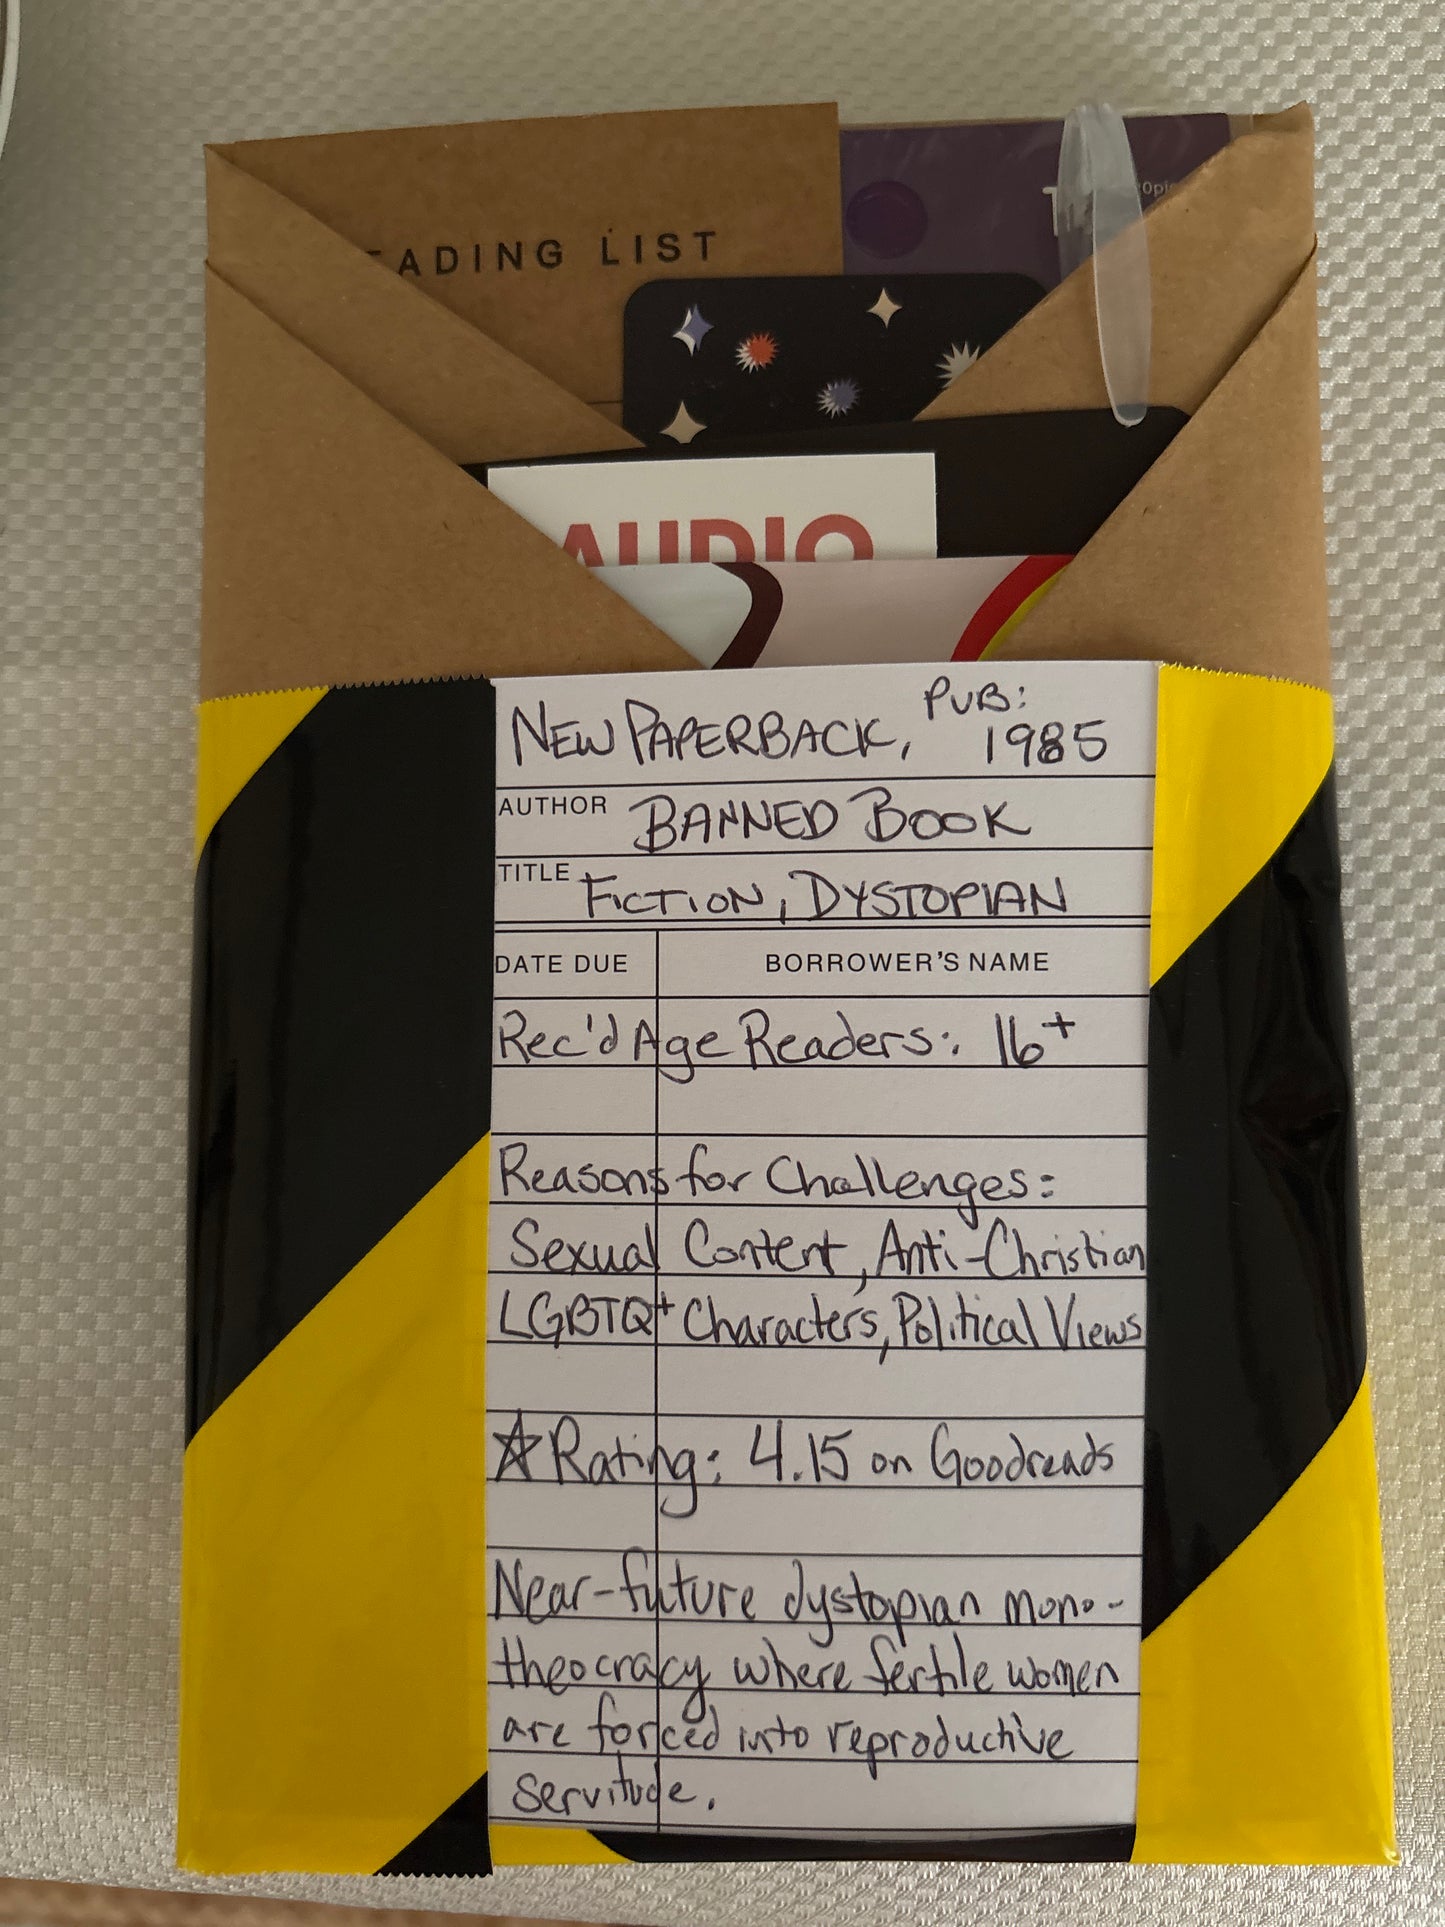 EADING LIST
AUDIO
NEW PAPERBACK, PUB: 1985
AUTHOR BANNED BOOK
TITLE FICTION, DYSTOPIAN
DATE DUE BORROWER'S NAME
Rec'd Age Readers: 16+
Reasons for Challenges:
Sexual Content, Anti-Christian
LGBTQ+ Characters, Political Views
☆ Rating: 4.15 on Goodreads
Near-future dystopian mono-
theocracy where fertile women
are forced into reproductive
servitude.